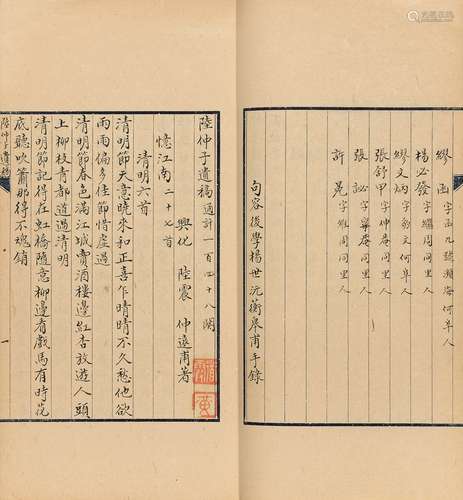 繆函字函九號瀨海何阜人
楊必發字繩周同里人
繆文炳字豹文何阜人
張舒甲字仲庵同里人
張諡字寧庵同里人
許堯字雉周同里人
句容後學楊世沅蘅皋甫手錄
陸仲子遺稿通計一百四十八闋
興化 陸震 仲遠甫著
憶江南二十七首
清明六首
清明節天意曉來和正喜乍晴晴不久愁他欲
雨雨偏多佳節惜虛過
清明節春色滿江城賣酒樓邊紅杏放遊人頭
上柳枝青都道過清明
清明節記得在虹橋隨意柳邊看戲馬有時花
底聽吹簫那得不魂銷
陸仲子遺稿
一